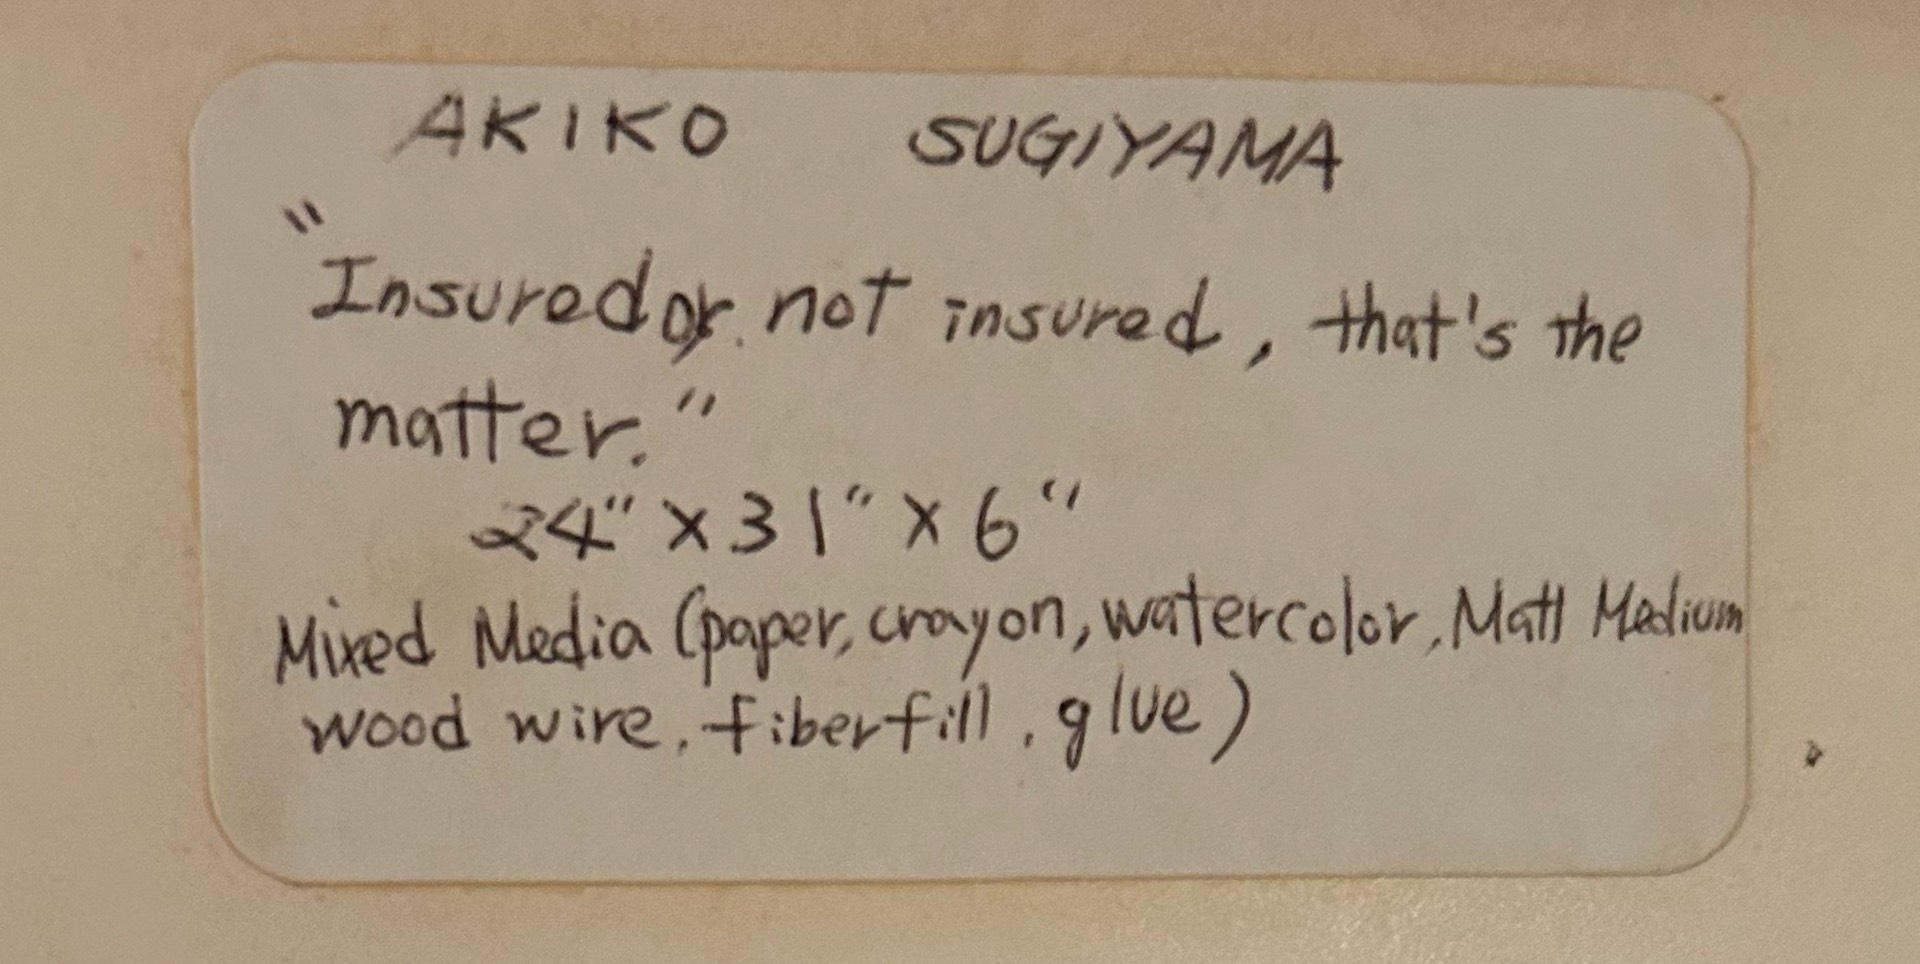 AKIKO SUGIYAMA
"Insured or not insured, that's the
matter."
24" x 31" x 6"
Mixed Media (paper, crayon, watercolor, Matt Medium
wood wire, fiberfill, glue)